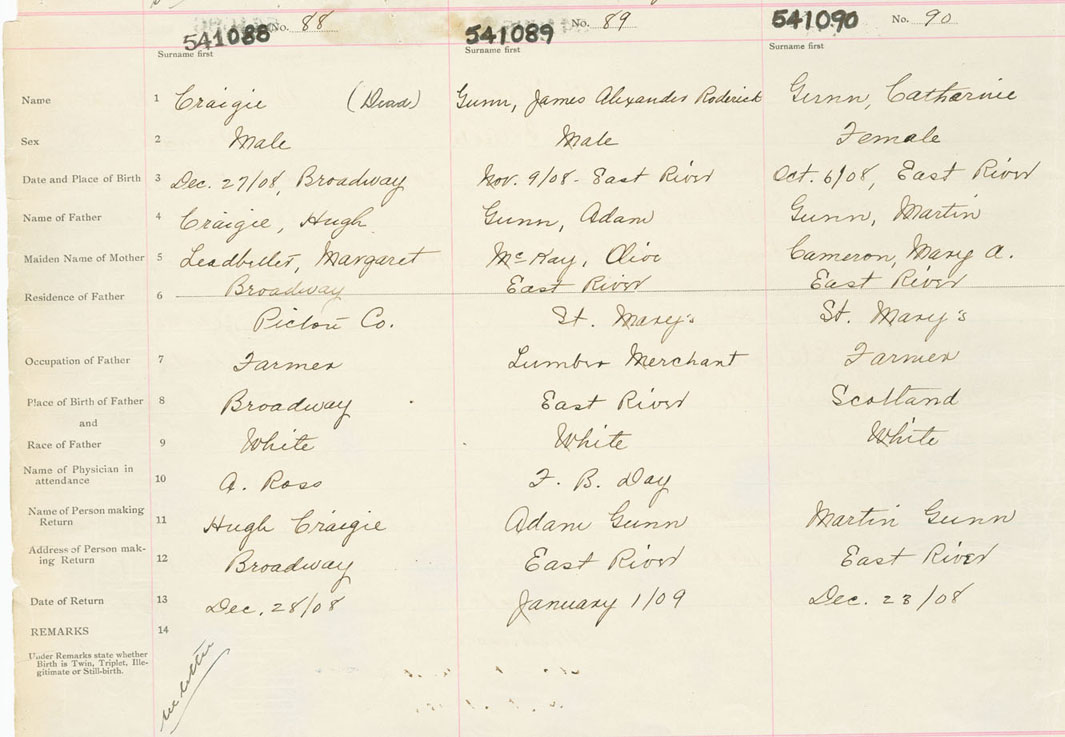 No. 88 No. 89 No. 90
541088 541089 541090
Surname first Surname first Surname first
Name 1 Craigie (Dead) Gunn, James Alexander Roderick Gunn, Catharine
Sex 2 Male Male Female
Date and Place of Birth 3 Dec. 27/08, Broadway Nov. 9/08 - East River Oct. 6/08, East River
Name of Father 4 Craigie, Hugh Gunn, Adam Gunn, Martin
Maiden Name of Mother 5 Leadbetter, Margaret McKay, Olive Cameron, Mary A.
Residence of Father 6 Broadway East River East River
Pictou Co. St. Mary's St. Mary's
Occupation of Father 7 Farmer Lumber Merchant Farmer
Place of Birth of Father 8 Broadway East River Scotland
and
Race of Father 9 White White White
Name of Physician in
attendance 10 A. Ross F. B. Day
Name of Person making
Return 11 Hugh Craigie Adam Gunn Martin Gunn
Address of Person mak-
ing Return 12 Broadway East River East River
Date of Return 13 Dec. 28/08 January 1/09 Dec. 23/08
REMARKS 14
Under Remarks state whether
Birth is Twin, Triplet, Ille-
gitimate or Still-birth.